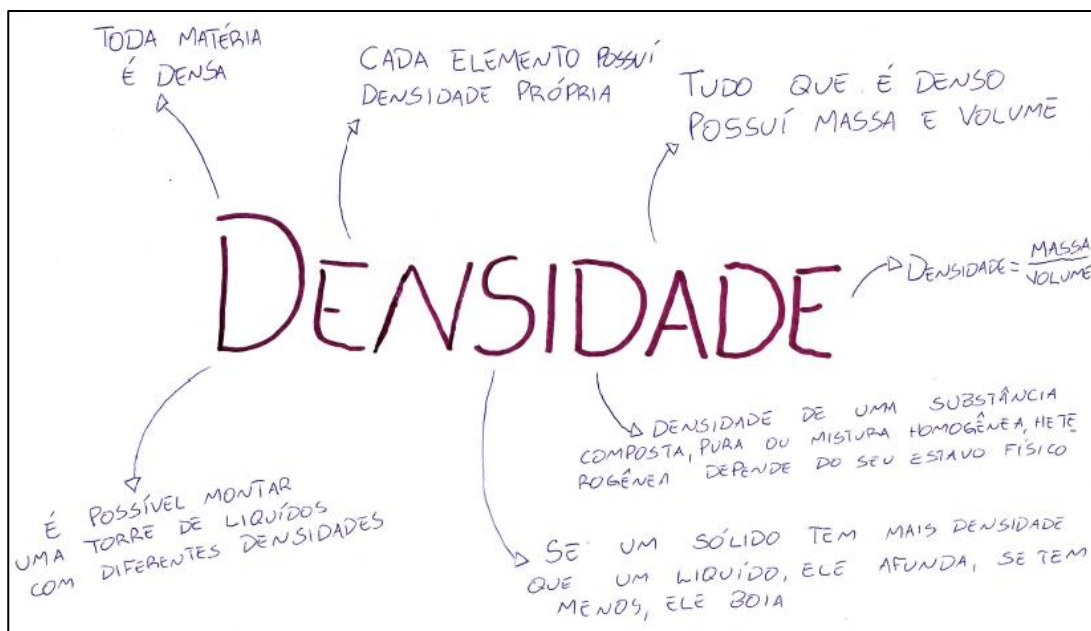 TODA MATÉRIA
É DENSA
CADA ELEMENTO POSSUÍ
DENSIDADE PRÓPRIA
TUDO QUE É DENSO
POSSUÍ MASSA E VOLUME
DENSIDADE
DENSIDADE = MASSA
VOLUME
DENSIDADE DE UMA SUBSTÂNCIA
COMPOSTA, PURA OU MISTURA HOMOGÊNEA, HETE
ROGÊNEA DEPENDE DO SEU ESTAVO FÍSICO
É POSSÍVEL MONTAR
UMA TORRE DE LIQUÍDOS
COM DIFERENTES DENSIDADES
SE UM SÓLIDO TEM MAIS DENSIDADE
QUE UM LIQUÍDO, ELE AFUNDA, SE TEM
MENOS, ELE BOIA